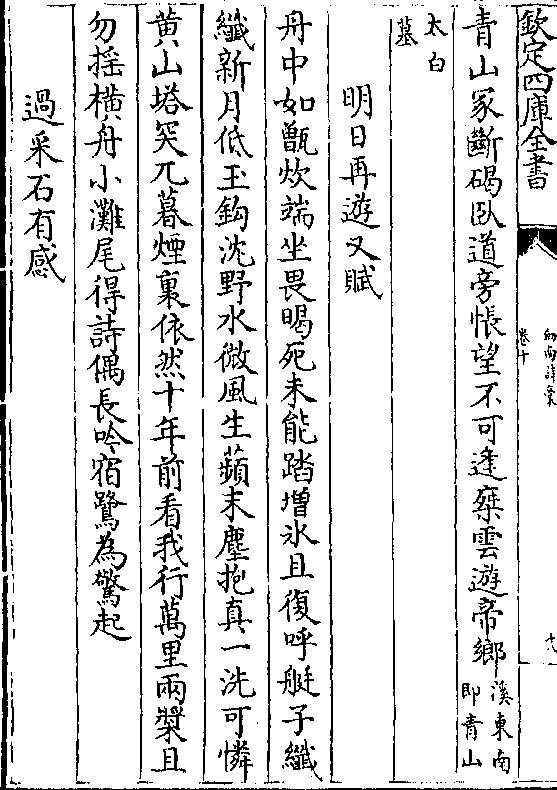 欽定四庫全書
劍南詩藁
卷十
十八
青山冢斷碣臥道旁悵望不可逢乘雲遊帝鄉溪東南即青山
太白墓
明日再遊又賦
舟中如甑炊端坐畏暍死未能踏增氷且復呼艇子纖
纖新月低玉鈎沈野水微風生蘋末塵抱真一洗可憐
黄山塔突兀暮煙裏依然十年前看我行萬里兩槳且
勿摇橫舟小灘尾得詩偶長吟宿鷺為驚起
過采石有感